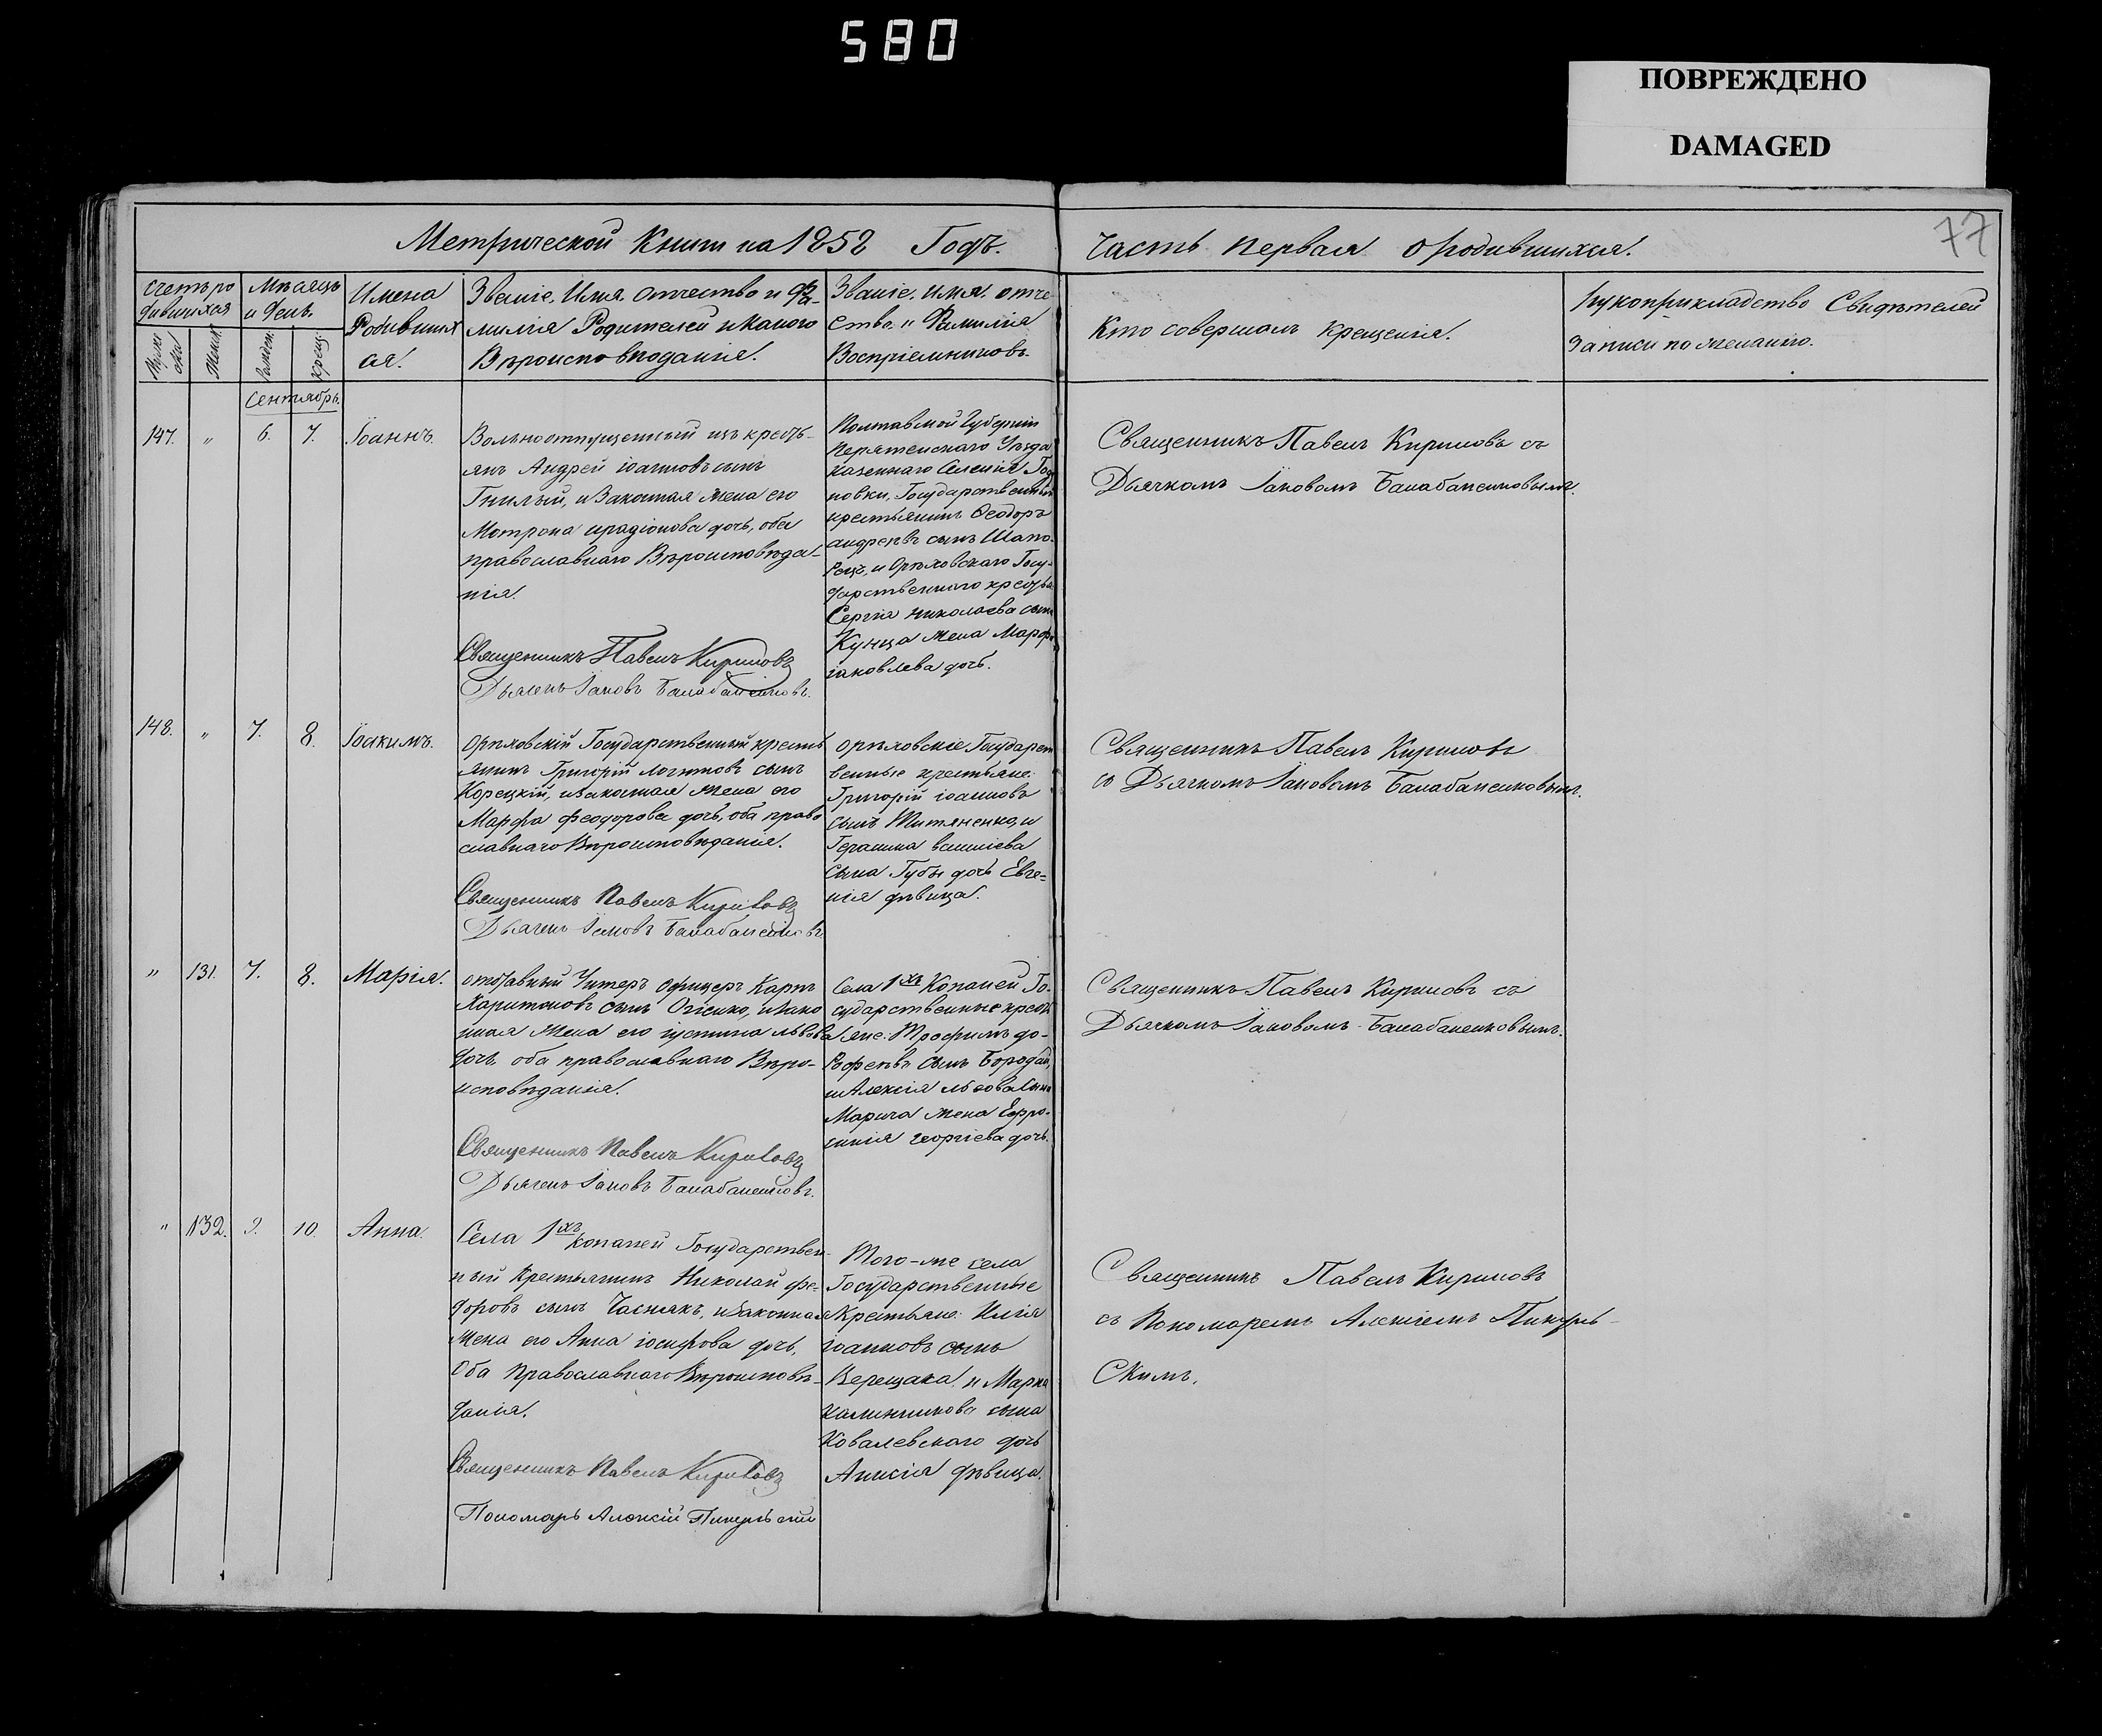 580
ПОВРЕЖДЕНО
DAMAGED
77
Метрической Книги на 1858 Годъ.
Часть первая о родившихся.
Счетъ ро
дившихся
Мѣсяцъ
и день.
Имена
Родивших
ся.
Званіе, Имя, отчество и Фа-
милія Родителей и какого
Вѣроисповѣданія.
Званіе, имя, отче
ство и Фамилія
Воспріемниковъ.
Кто совершалъ крещенія.
Рукоприкладство Свидѣтелей
записи по желанію.
Женск.
крещ.
Сентябрь.
147. " 6. 7. Іоаннъ.
Вольноотпущенный изъ кресть-
янъ Андрей іоанновъ сынъ
Гнилый, и Законная жена его
Мотрона ирадіонова дочь, оба
православнаго Вѣроисповѣда-
нія.
Священникъ Павелъ Кириловъ
Дьячекъ Іаковъ Балабаненковъ.
Полтавской Губерніи
Пирятенскаго Уѣзда
казеннаго Селенія
новки, Государственный
крестьянинъ Ѳеодоръ
андреевъ сынъ Шапо-
, и Орѣховскаго Госу-
дарственнаго кресть
Сергія николаева сына
Кунца жена Марфа
іаковлева дочь.
Священникъ Павелъ Кириловъ съ
Дьячкомъ Іаковомъ Балабаненковымъ.
148. " 7. 8. Іоакимъ.
Орѣховскій Государственный кресть
янинъ Григорій логиновъ сынъ
Корецкій, и законная жена его
Марфа феодорова дочь, оба право
славнаго Вѣроисповѣданія.
Священникъ Павелъ Кириловъ
Дьячекъ Іаковъ Балабаненковъ.
орѣховскіе Государст
венные крестьяне:
Григорій іоанновъ
сынъ и
Герасима василіева
сына Губы дочь Евге=
нія дѣвица.
Священникъ Павелъ Кириловъ
съ Дьячкомъ Іаковомъ Балабаненковымъ.
" 131. 7. 8. Марія.
отставный Унтеръ офицеръ Карпъ
Харитоновъ сынъ Огіенко, и зако
нная жена его іустина львова
дочь, оба православнаго Вѣро-
исповѣданія.
Священникъ Павелъ Кириловъ
Дьячекъ Іаковъ Балабаненковъ.
Села 1хъ Копаней Го-
сударственные кресть
яне: Трофимъ до-
рофеевъ сынъ Бородай,
и Алексія львова сына
Марича жена Евфро-
синія георгіева дочь.
Священникъ Павелъ Кириловъ съ
Дьячкомъ Іаковомъ Балабаненковымъ.
" 132. 9. 10. Анна.
Села 1хъ копаней Государствен-
ный Крестьянинъ Николай фе-
доровъ сынъ Часнякъ, и законная
жена его Анна іосифова дочь,
Оба Православнаго Вѣроисповѣ-
данія.
Священникъ Павелъ Кириловъ
Пономарь Алексій
Того-же села
Государственные
Крестьяне: Илія
іоанновъ сынъ
Верещака и Марка
Калинникова сына
Ковалевскаго дочь
Анисія дѣвица.
Священникъ Павелъ Кириловъ
съ Пономаремъ Алексіемъ
Скимъ.